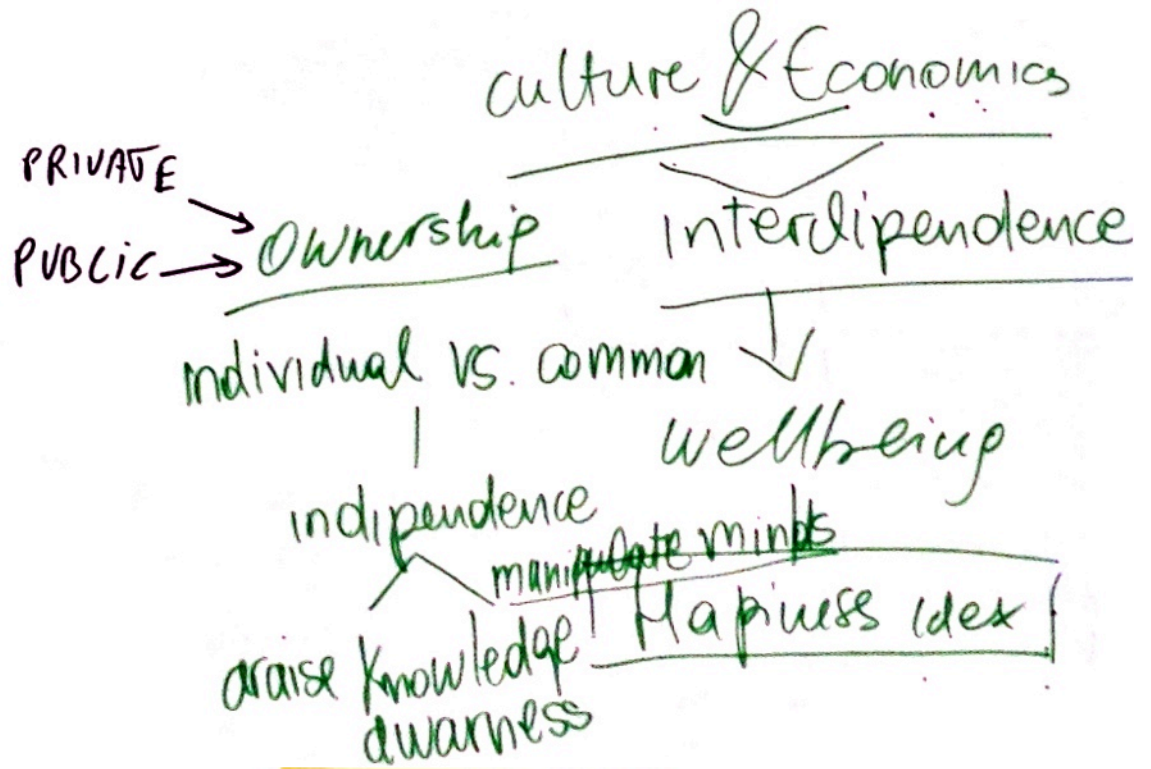 culture & Economics
PRIVATE
PUBLIC
Ownership
Interdipendence
individual vs. common
wellbeing
indipendence
manipulate minds
Hapiness idex
araise knowledge
awarness